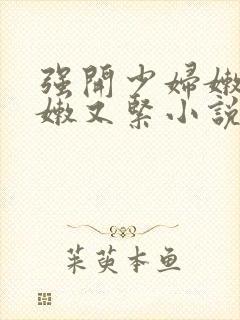 强開少婦嫩
嫩又緊小說
茱萸本鱼